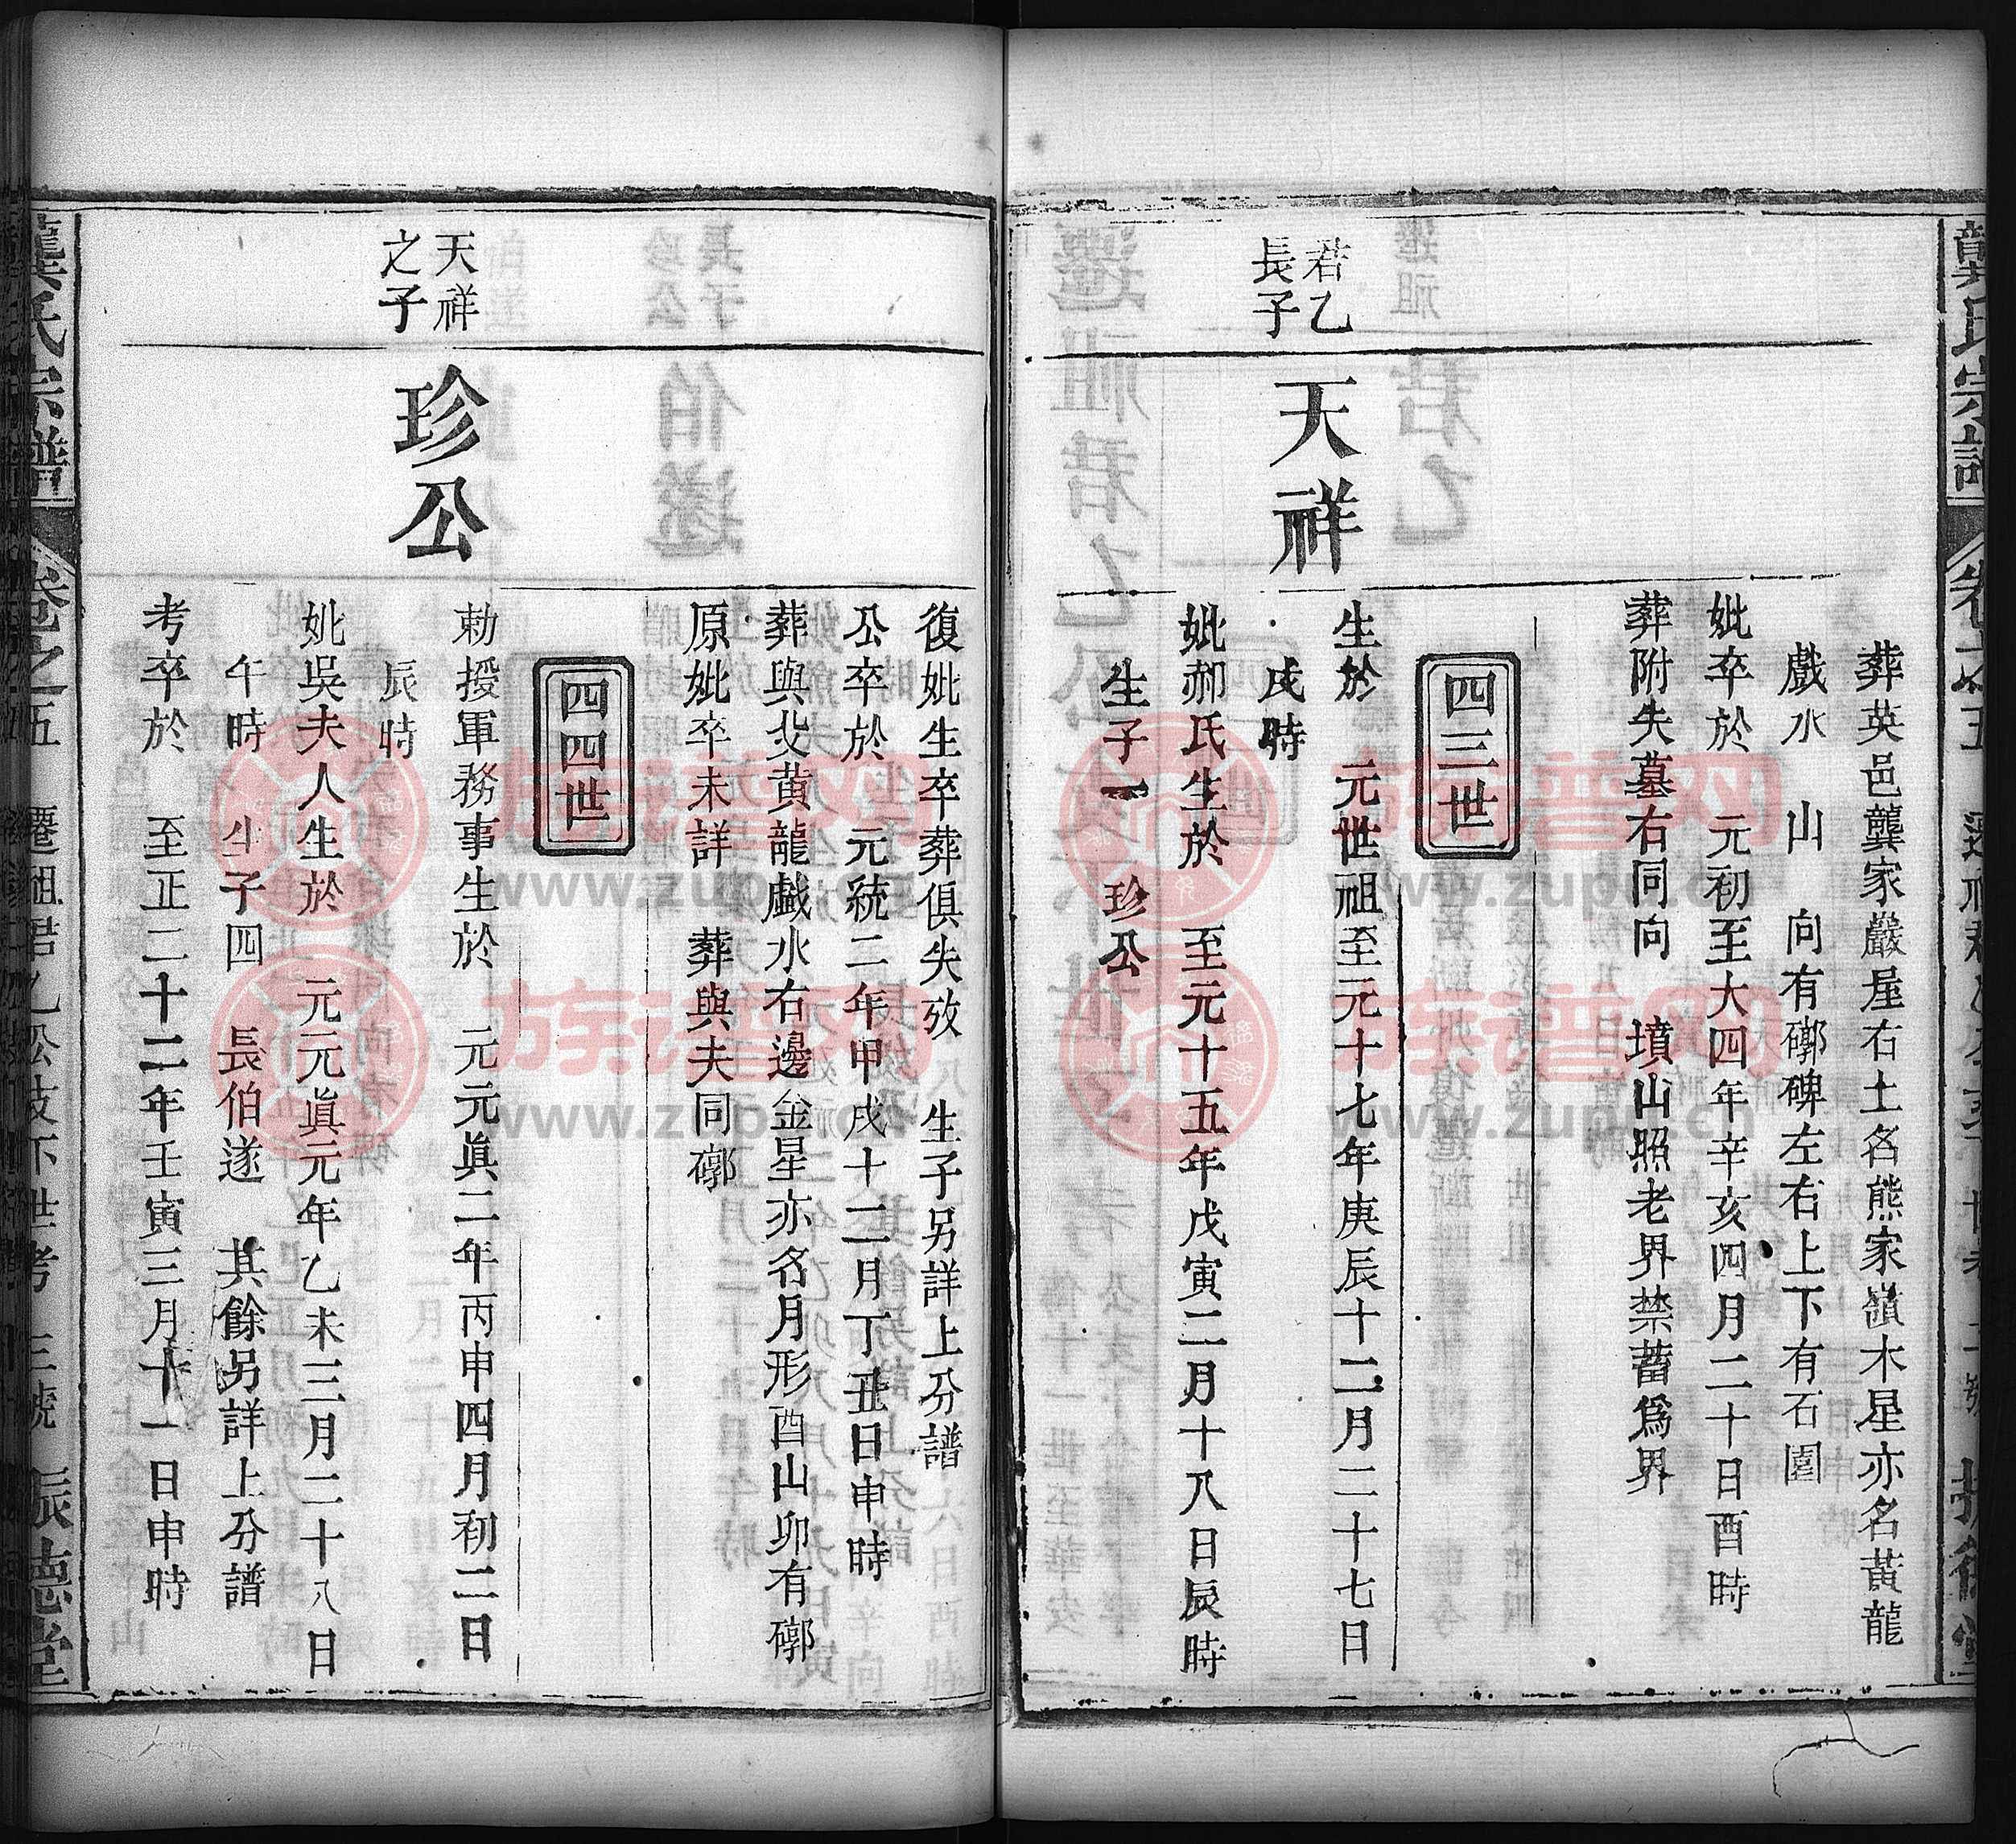 龔氏宗譜
葬英邑龔家嚴屋右土名熊家嶺木星亦名黃龍
戲水 山 向有槨碑左右上下有石圍
妣卒於 元初至大四年辛亥四月二十日酉時
葬附夫墓右同向 墳山照老界禁蓄爲界
四三世
君乙
長子
天祥
生於 元世祖至元十七年庚辰十二月二十七日
戌時
妣郝氏生於 至元十五年戊寅二月十八日辰時
生子一 珍公
復妣生卒葬俱失攷 生子另詳上分譜
公卒於 元統二年甲戌十二月丁丑日申時
葬與父黃龍戲水右邊金星亦名月形酉山卯有槨
原妣卒未詳 葬與夫同槨
四四世
天祥
之子
珍公
勅授軍務事生於 元元眞二年丙申四月初二日
辰時
妣吳夫人生於 元元眞元年乙未三月二十八日
午時 生子四 長伯遂 其餘另詳上分譜
考卒於 至正二十二年壬寅三月十一日申時
龔氏宗譜 卷之五 遷祖君乙公支下世考 三號 振德堂
族谱网 www.zupu.cn
族谱网 www.zupu.cn
族谱网 www.zupu.cn
族谱网 www.zupu.cn